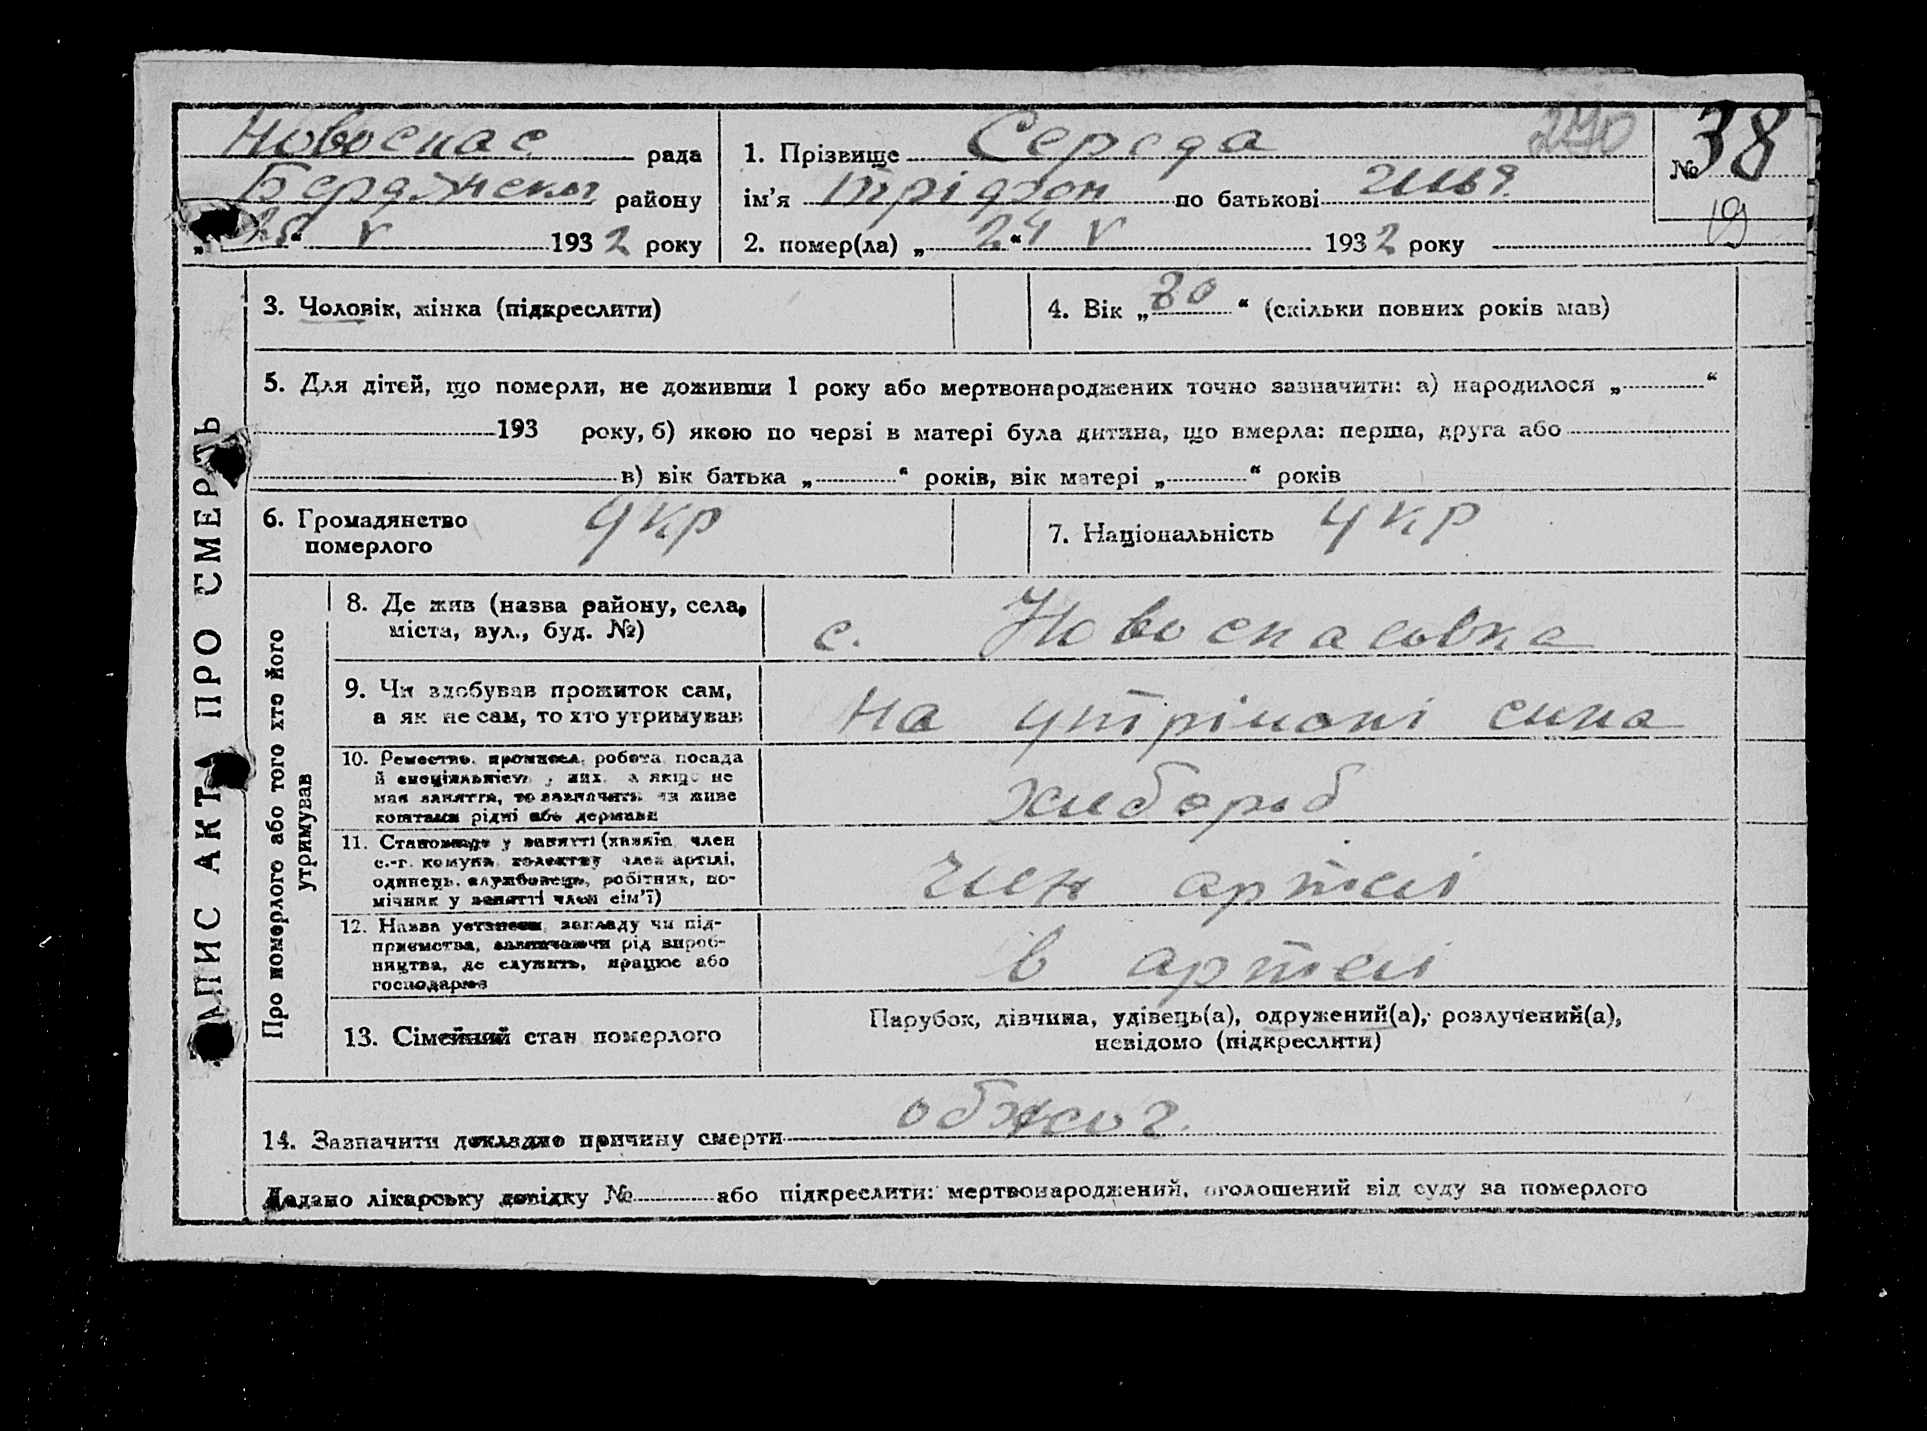 Новоспас рада
Бердянськ району
„25“ V 1932 року
1. Прізвище Середа
ім’я Трідфон по батькові Илья
2. помер(ла) „24“ V 1932 року
270
№ 38
19
ЗАПИС АКТА ПРО СМЕРТЬ
3. Чоловік, жінка (підкреслити)
4. Вік „80“ (скільки повних років мав)
5. Для дітей, що померли, не доживши 1 року або мертвонароджених точно зазначити: а) народилося „ “
193 року, б) якою по черзі в матері була дитина, що вмерла: перша, друга або
в) вік батька „ “ років, вік матері „ “ років
6. Громадянство
померлого
укр
7. Національність укр
Про померлого або того хто його
утримував
8. Де жив (назва району, села,
міста, вул., буд. №)
с. Новоспасовка
9. Чи здобував прожиток сам,
а як не сам, то хто утримував
на утрімані сина
10. Ремество, промисел, робота, посада
й спеціяльність у них, а якщо не
мав заняття, то зазначити чи живе
коштами рідні або держави
хибороб
11. Становище у занятті (хазяїн, член
с.-г. комуни, колективу член артілі,
одинець, службовець, робітник, по-
мічник у занятті член сім’ї)
член артели
12. Назва установи, закладу чи під-
приємства, зазначаючи рід вироб-
ництва, де служить, працює або
господарює
в артели
13. Сімейний стан померлого
Парубок, дівчина, удівець(а), одружений(а), розлучений(а),
невідомо (підкреслити)
14. Зазначити докладно причину смерти обжог.
Додано лікарську довідку № або підкреслити: мертвонароджений, оголошений від суду за померлого